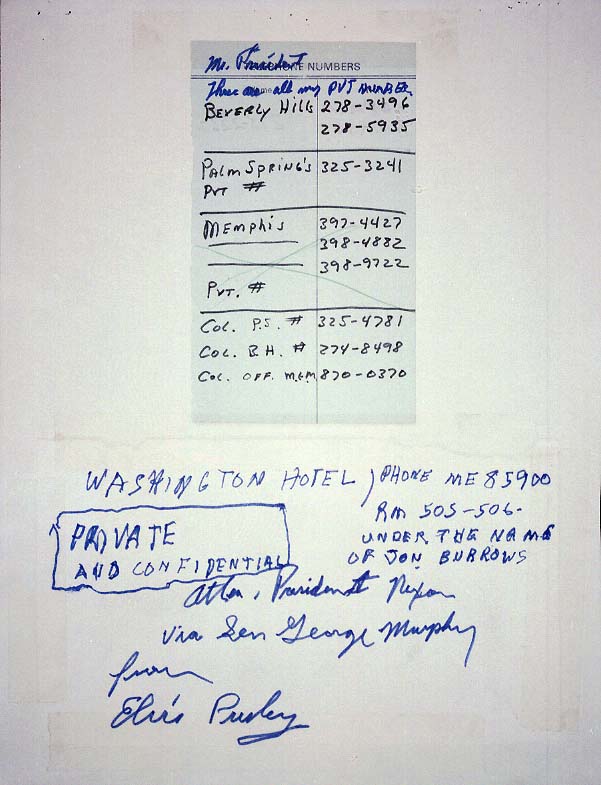 Mr. President
TELEPHONE NUMBERS
These are all my PVT NUMBER
BEVERLY HILLS 278-3496
278-5935
PALM SPRING'S 325-3241
PVT #
MEMPHIS 397-4427
398-4882
398-9722
PVT. #
COL. P.S. # 325-4781
COL. B.H. # 274-8498
COL. OFF. M.G.M. 870-0370
WASHINGTON HOTEL ) PHONE ME 85900
RM 505-506-
UNDER THE NAME
OF JON BURROWS
PRIVATE
AND CONFIDENTIAL
Attn. President Nixon
via Sen George Murphy
from
Elvis Presley